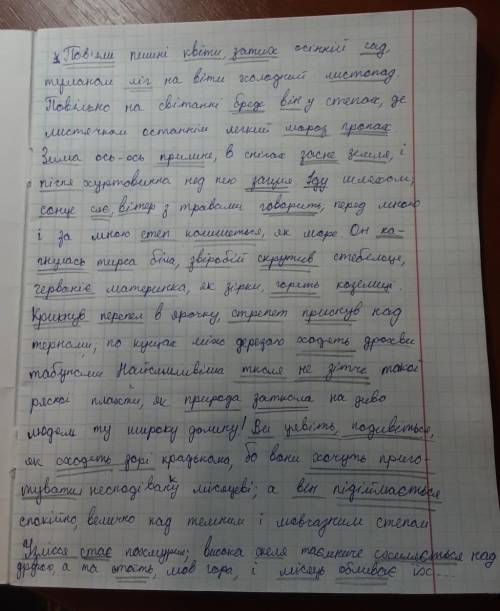 Пов'яли пишні квіти, затих осінній сад,
туманом ліг на віти холодний листопад.
Повільно на світанні бреде він у степах, де
листячком останнім легкий мороз пропах
Зима ось-ось прилине, в снігах засне земля, і
пісня хуртовинна над нею загуля Іду шляхом;
сонце сяє, вітер з травами говорить, перед мною
і за мною степ колишеться, як море Он на-
гнулась тирса біла, звіробій скрутив стебельце,
червоніє материнка, як зірки, горять козельці.
Крикнув перепел в ярочку, стрепет приснув над
тернами, по кущах між дерезою ходять дрохви
табунами Найсмиливіша ткаля не зітче такої
рясної плахти, як природа заткала на диво
людям ту широку долину! Ви уявіть, подивіться,
як сходять зорі крадькома, бо вони хочуть приго-
тувати несподіванку місяцеві; а він підіймається
спокійно, велично над темним і мовчазним степом
Узлісся стає похмурим; висока скеля таємниче над
другою, а та стоїть, мов гора, і місяць обливає їх...